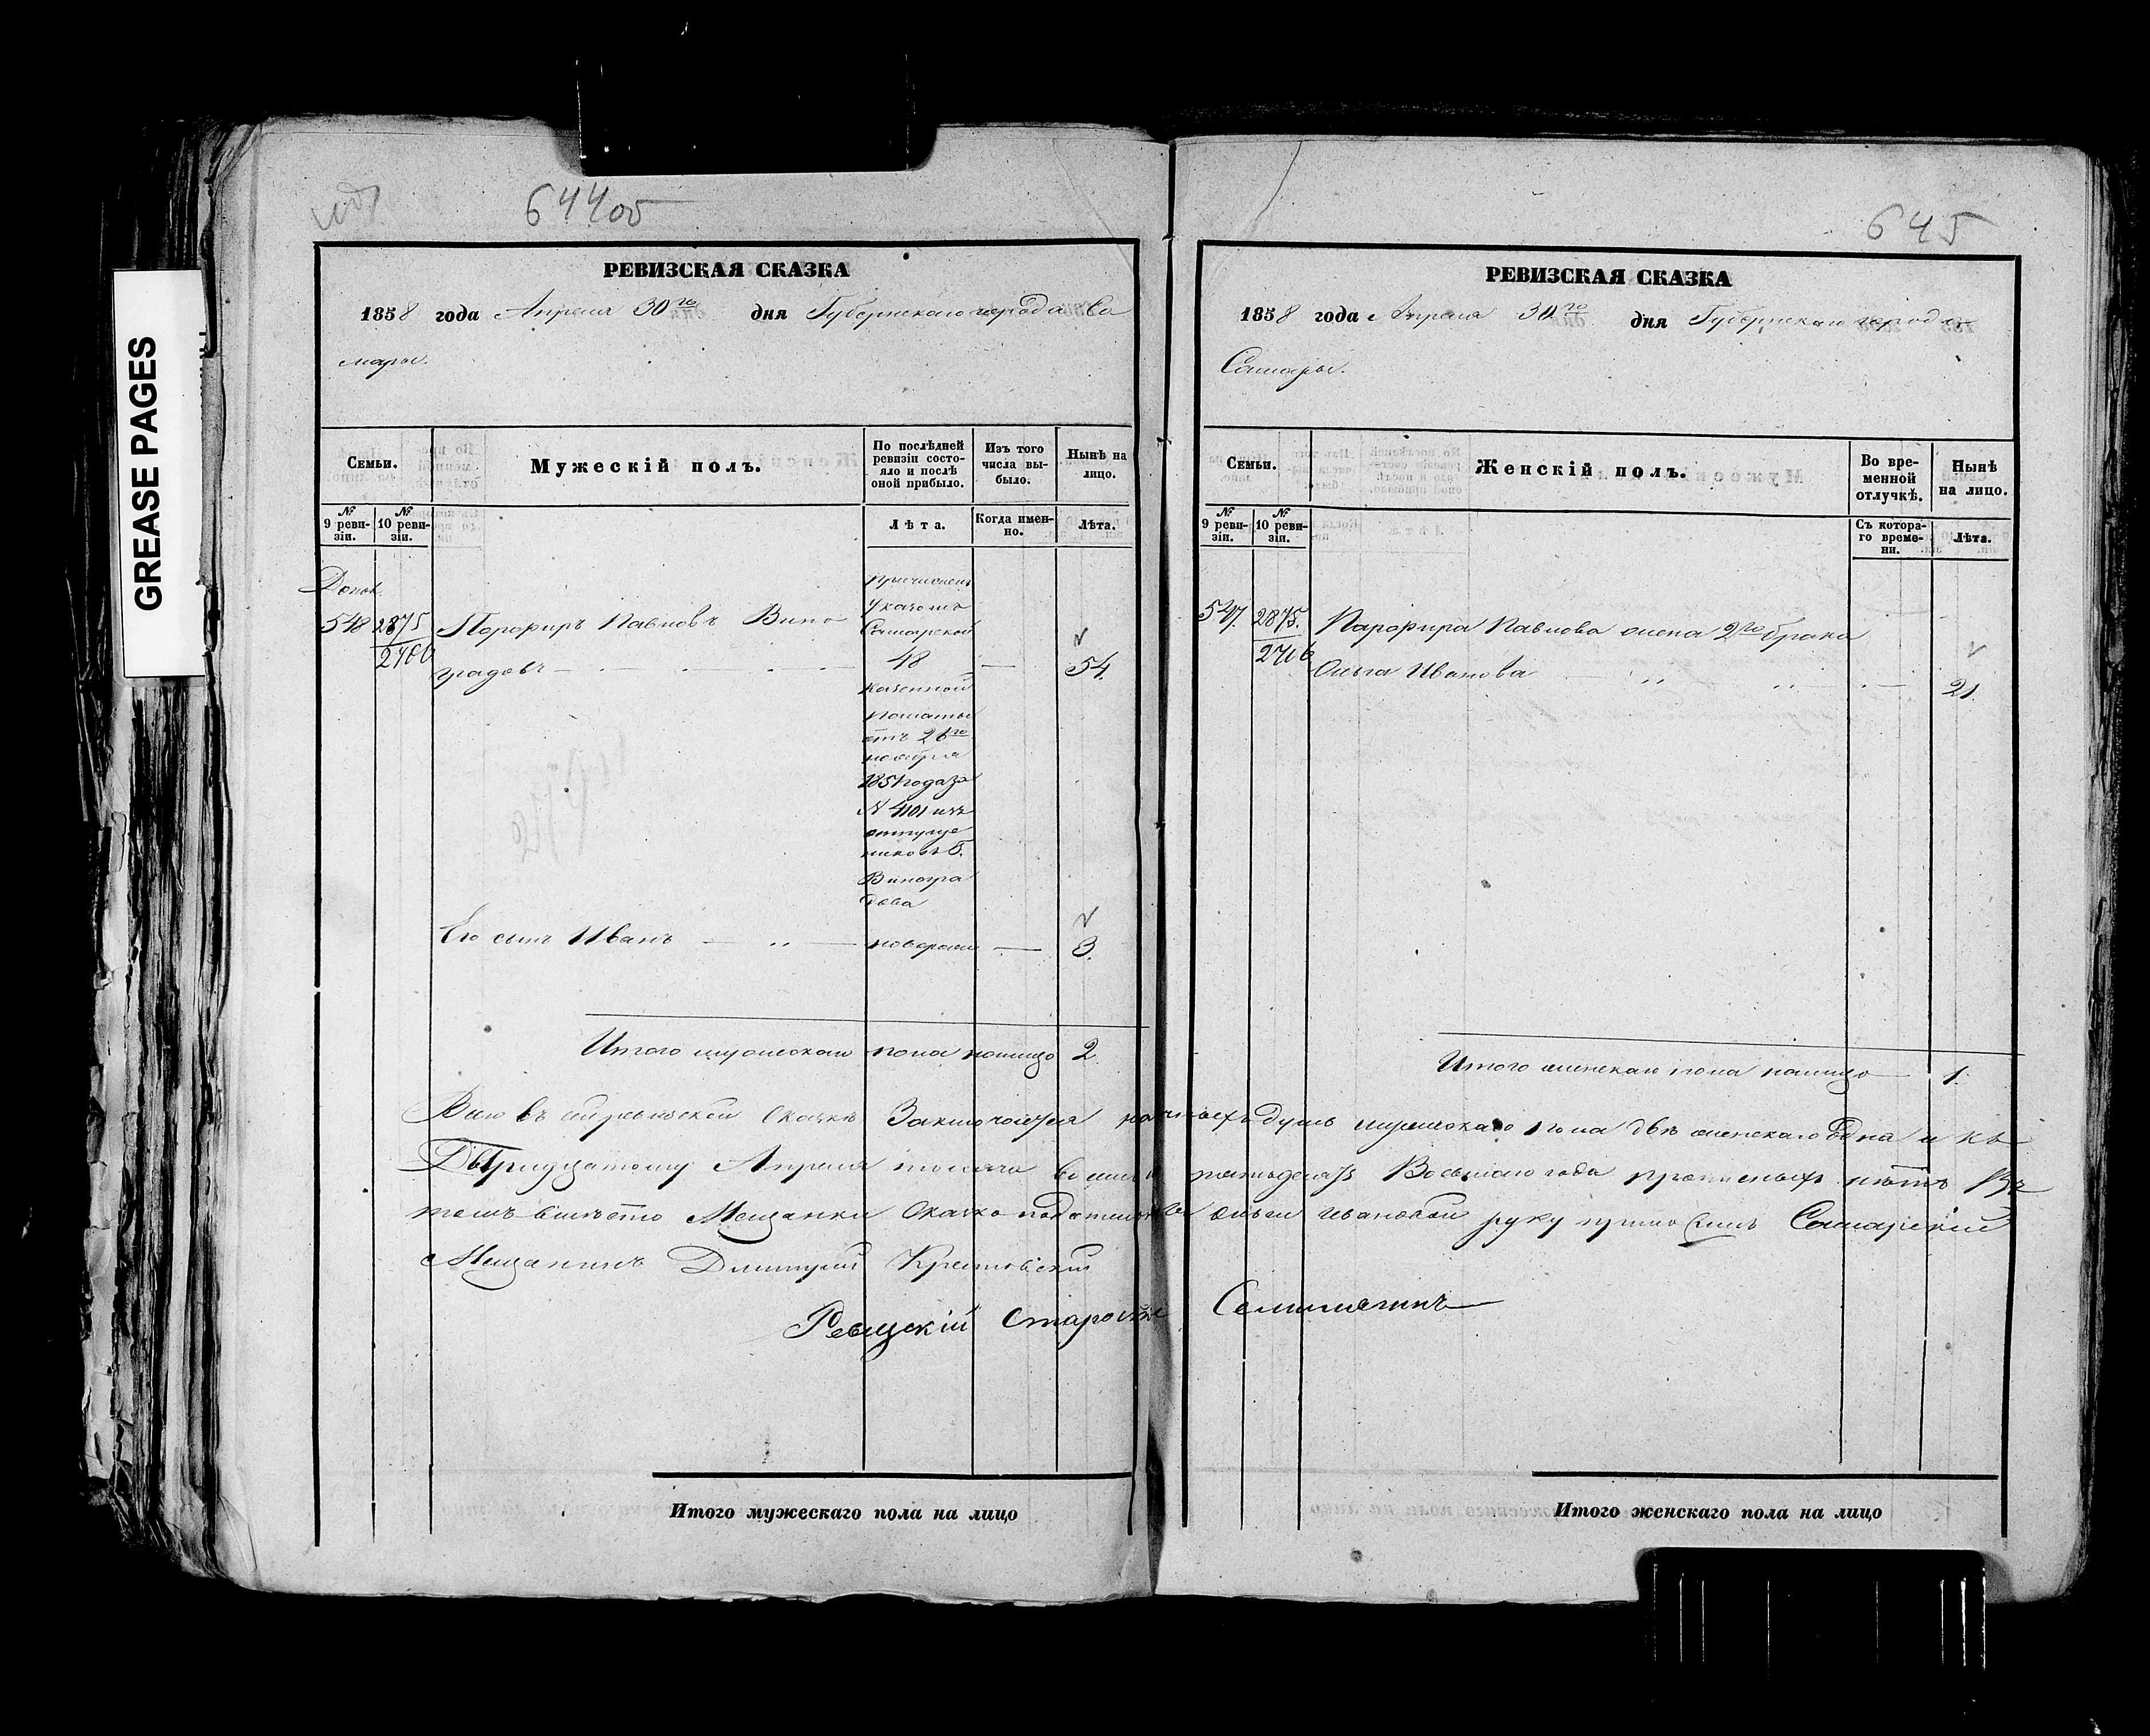 GREASE PAGES
644об
РЕВИЗСКАЯ СКАЗКА
1858 года Апреля 30го дня Губернскаго города Са
мары.
Семьи.
Мужескій полъ.
По послѣдней
ревизіи состо-
яло и послѣ
оной прибыло.
Изъ того
числа вы-
было.
Нынѣ на
лицо.
№
9 реви-
зіи.
№
10 реви-
зіи.
Лѣта.
Когда имен-
но.
Лѣта.
548 2875 Порфиръ Павловъ Вино
градовъ 48 54.
причисленъ
Указомъ
Самарской
Казенной
палаты
отъ 26го
ноября
N 4101 изъ
отпуще
никовъ Г.
Виногра
дова
Его сынъ Иванъ 3.
Итого мужескаго пола налицо 2.
645
РЕВИЗСКАЯ СКАЗКА
1858 года Апреля 30го дня Губернскаго города
Самары.
Семьи.
Женскій полъ.
Во вре-
менной
отлучкѣ.
Нынѣ
на лицо.
№
9 реви-
зіи.
№
10 реви-
зіи.
Съ котора-
го време-
ни.
Лѣта.
547. 2875. Парфира Павлова жена 2го брака
Ольга Иванова 21.
Итого женскаго пола налицо 1.
Всего въ сей ревизской Сказкѣ Заключается наличныхъ душъ мужескаго пола двѣ женскаго одна и къ
Тридцатому Апреля тысяча восемь сотъ пятьдесятъ Восьмаго года прописныхъ нѣтъ Въ
томъ вместо Мещанки Сказко подательницы Ольги Ивановой руку приложилъ Самарскій
Мещанинъ Дмитрій
Ревизскій Староста
Итого мужескаго пола на лицо
Итого женскаго пола на лицо